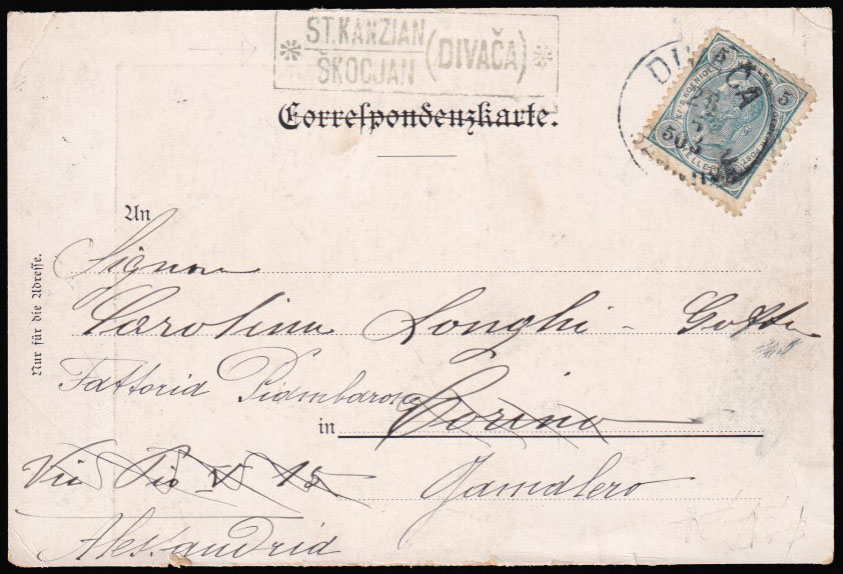 ST. KANZIAN
ŠKOCJAN
(DIVAČA)
Correspondenzkarte.
DIVAČA
5
5
An
Signora
Carolina Longhi - Gotta
Nur für die Adresse.
Fattoria Piambarone
in Torino
Via Pio V 15 Gamalero
Alessandria